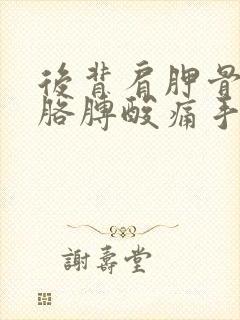 後背肩胛骨
胳膊酸痛手
謝壽堂